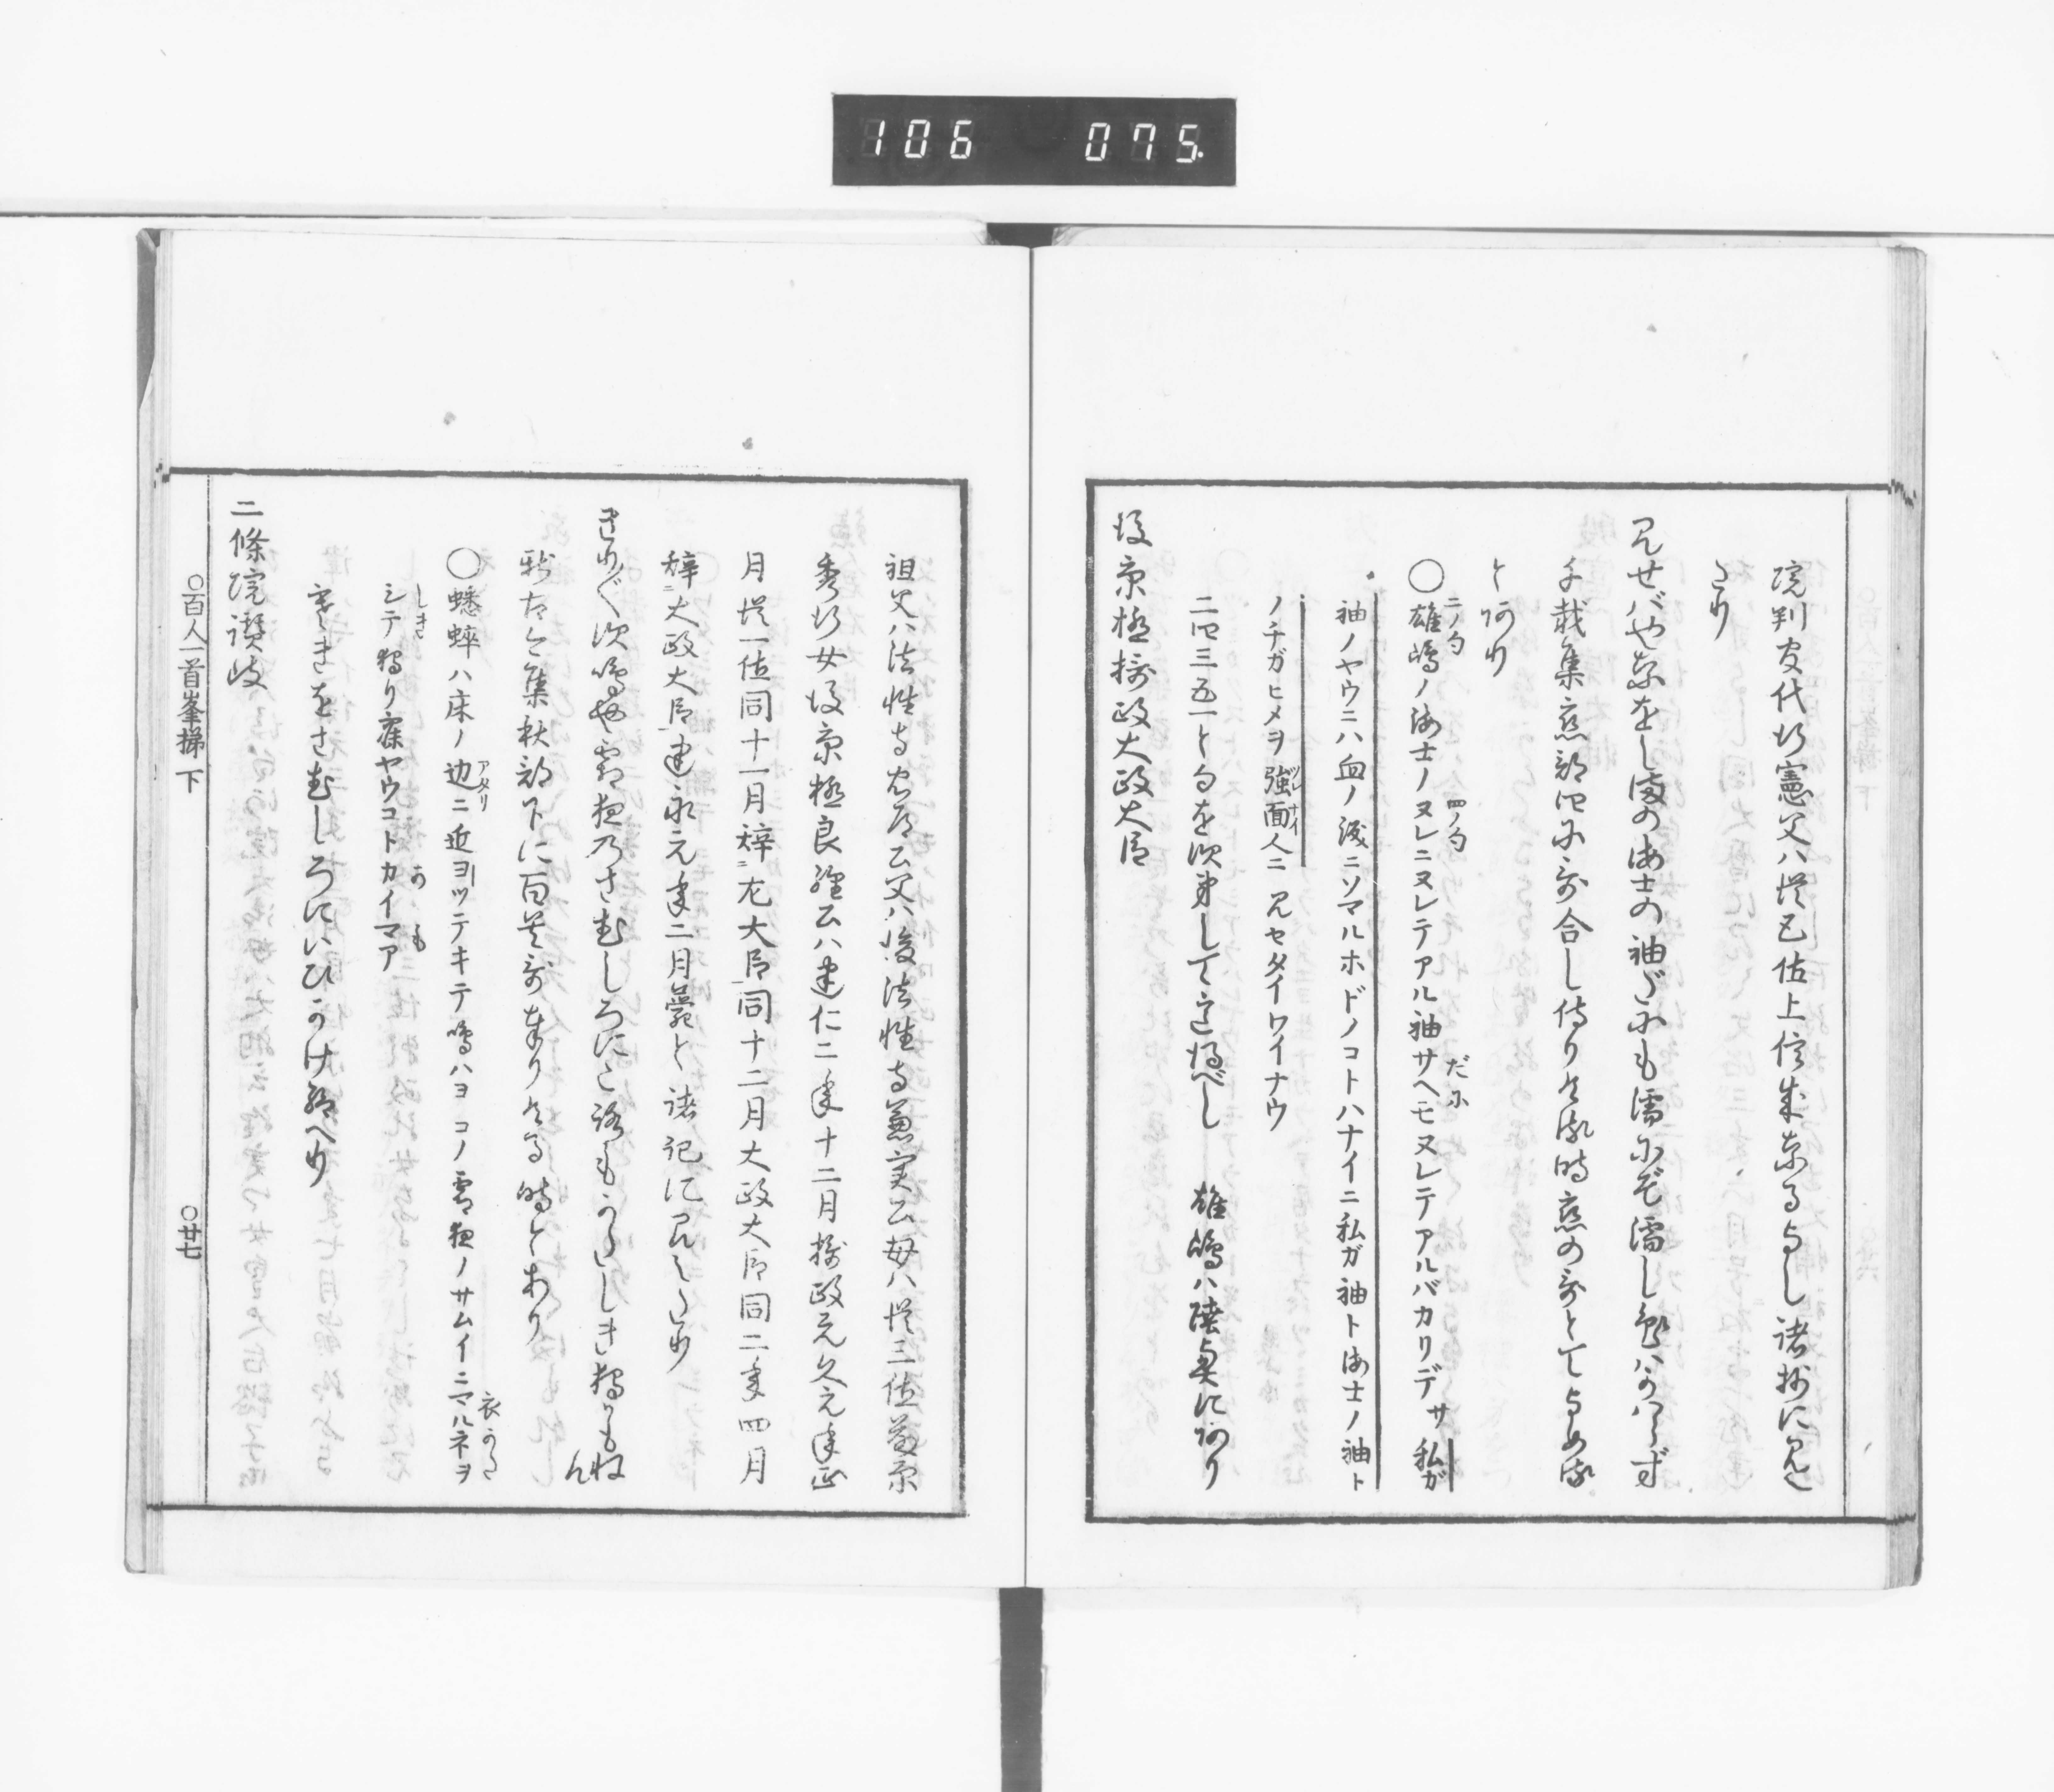 106 075
院判官代行憲父ハ従五位上信成なるよし諸抄に見え
たり
見せばやなをしまのあまの袖だにも濡にぞ濡し色ハかはらず
千載集恋部四に哥合し侍りける時恋の哥とてよめる
とあり
○雄嶋ノ海士ノヌレニヌレテアル袖サヘモヌレテアルバカリデサ私ガ
二ノ句 四ノ句 だに
袖ノヤウニハ血ノ涙ニソマルホドノコトハナイニ私ガ袖ト海士ノ袖ト
ノチガヒメヲ強面人ニ見セタイワイナウ
ツレナイ
二四三五一と句を次第して意得べし 雄嶋ハ陸奥にあり
後京極摂政大政大臣
祖父ハ法性寺忠通公父ハ後法性寺兼実公母ハ従三位藤原
秀行女後京極良経公ハ建仁二年十二月摂政元久元年正
月従一位同十一月辞左大臣同十二月大政大臣同二年四月
辞大政大臣建永元年二月薨と諸記に見えたり
きり〲す鳴や霜夜のさむしろにころもかたしき独かもねん
新古今集秋部下に百首哥奉りける時とあり
○蟋蟀ハ床ノ辺ニ近ヨツテキテ鳴ハヨコノ霜夜ノサムイニマルネヲ
アタリ 衣かた
シテ独リ寐ヤウコトカイマア
しき か も
寒きをさむしろにいひかけ給へり
二條院讃岐
○百人一首峯梯 下 ○廿七